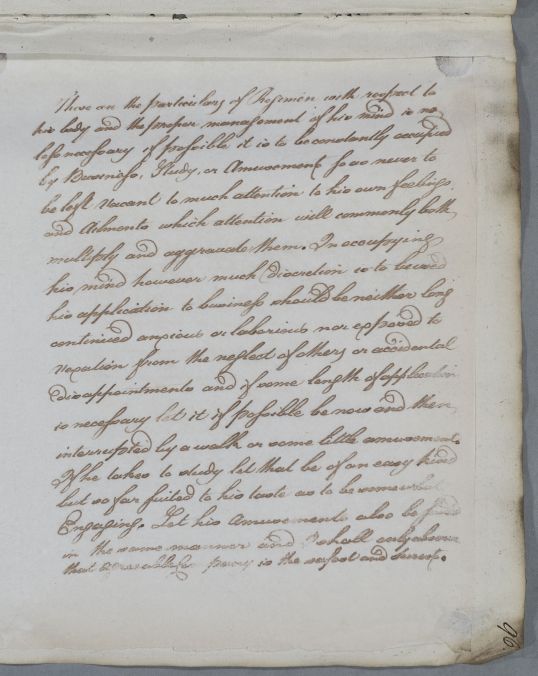 These are the particulars of Regimen with respect to
his body and the proper management of his mind is no
less necessary if possible it is to be constantly occupied
by Business, Study, or Amusement so as never to
be left vacant to much attention to his own feelings
and Ailments which attention will commonly both
multiply and aggravate them. In occupying
his mind however much discretion is to be used
his application to business should be neither long
continued anxious or laborious nor exposed to
vexation from the neglect of others or accidental
disappointments and if some length of application
is necessary let it if possible be now and then
interrupted by a walk or some little amusement.
If he takes to study let that be of an easy kind
but so far suited to his taste as to be somewhat
Engaging. Let his Amusements also be
in the same manner and I shall only observe
that is the safest and surest.
96